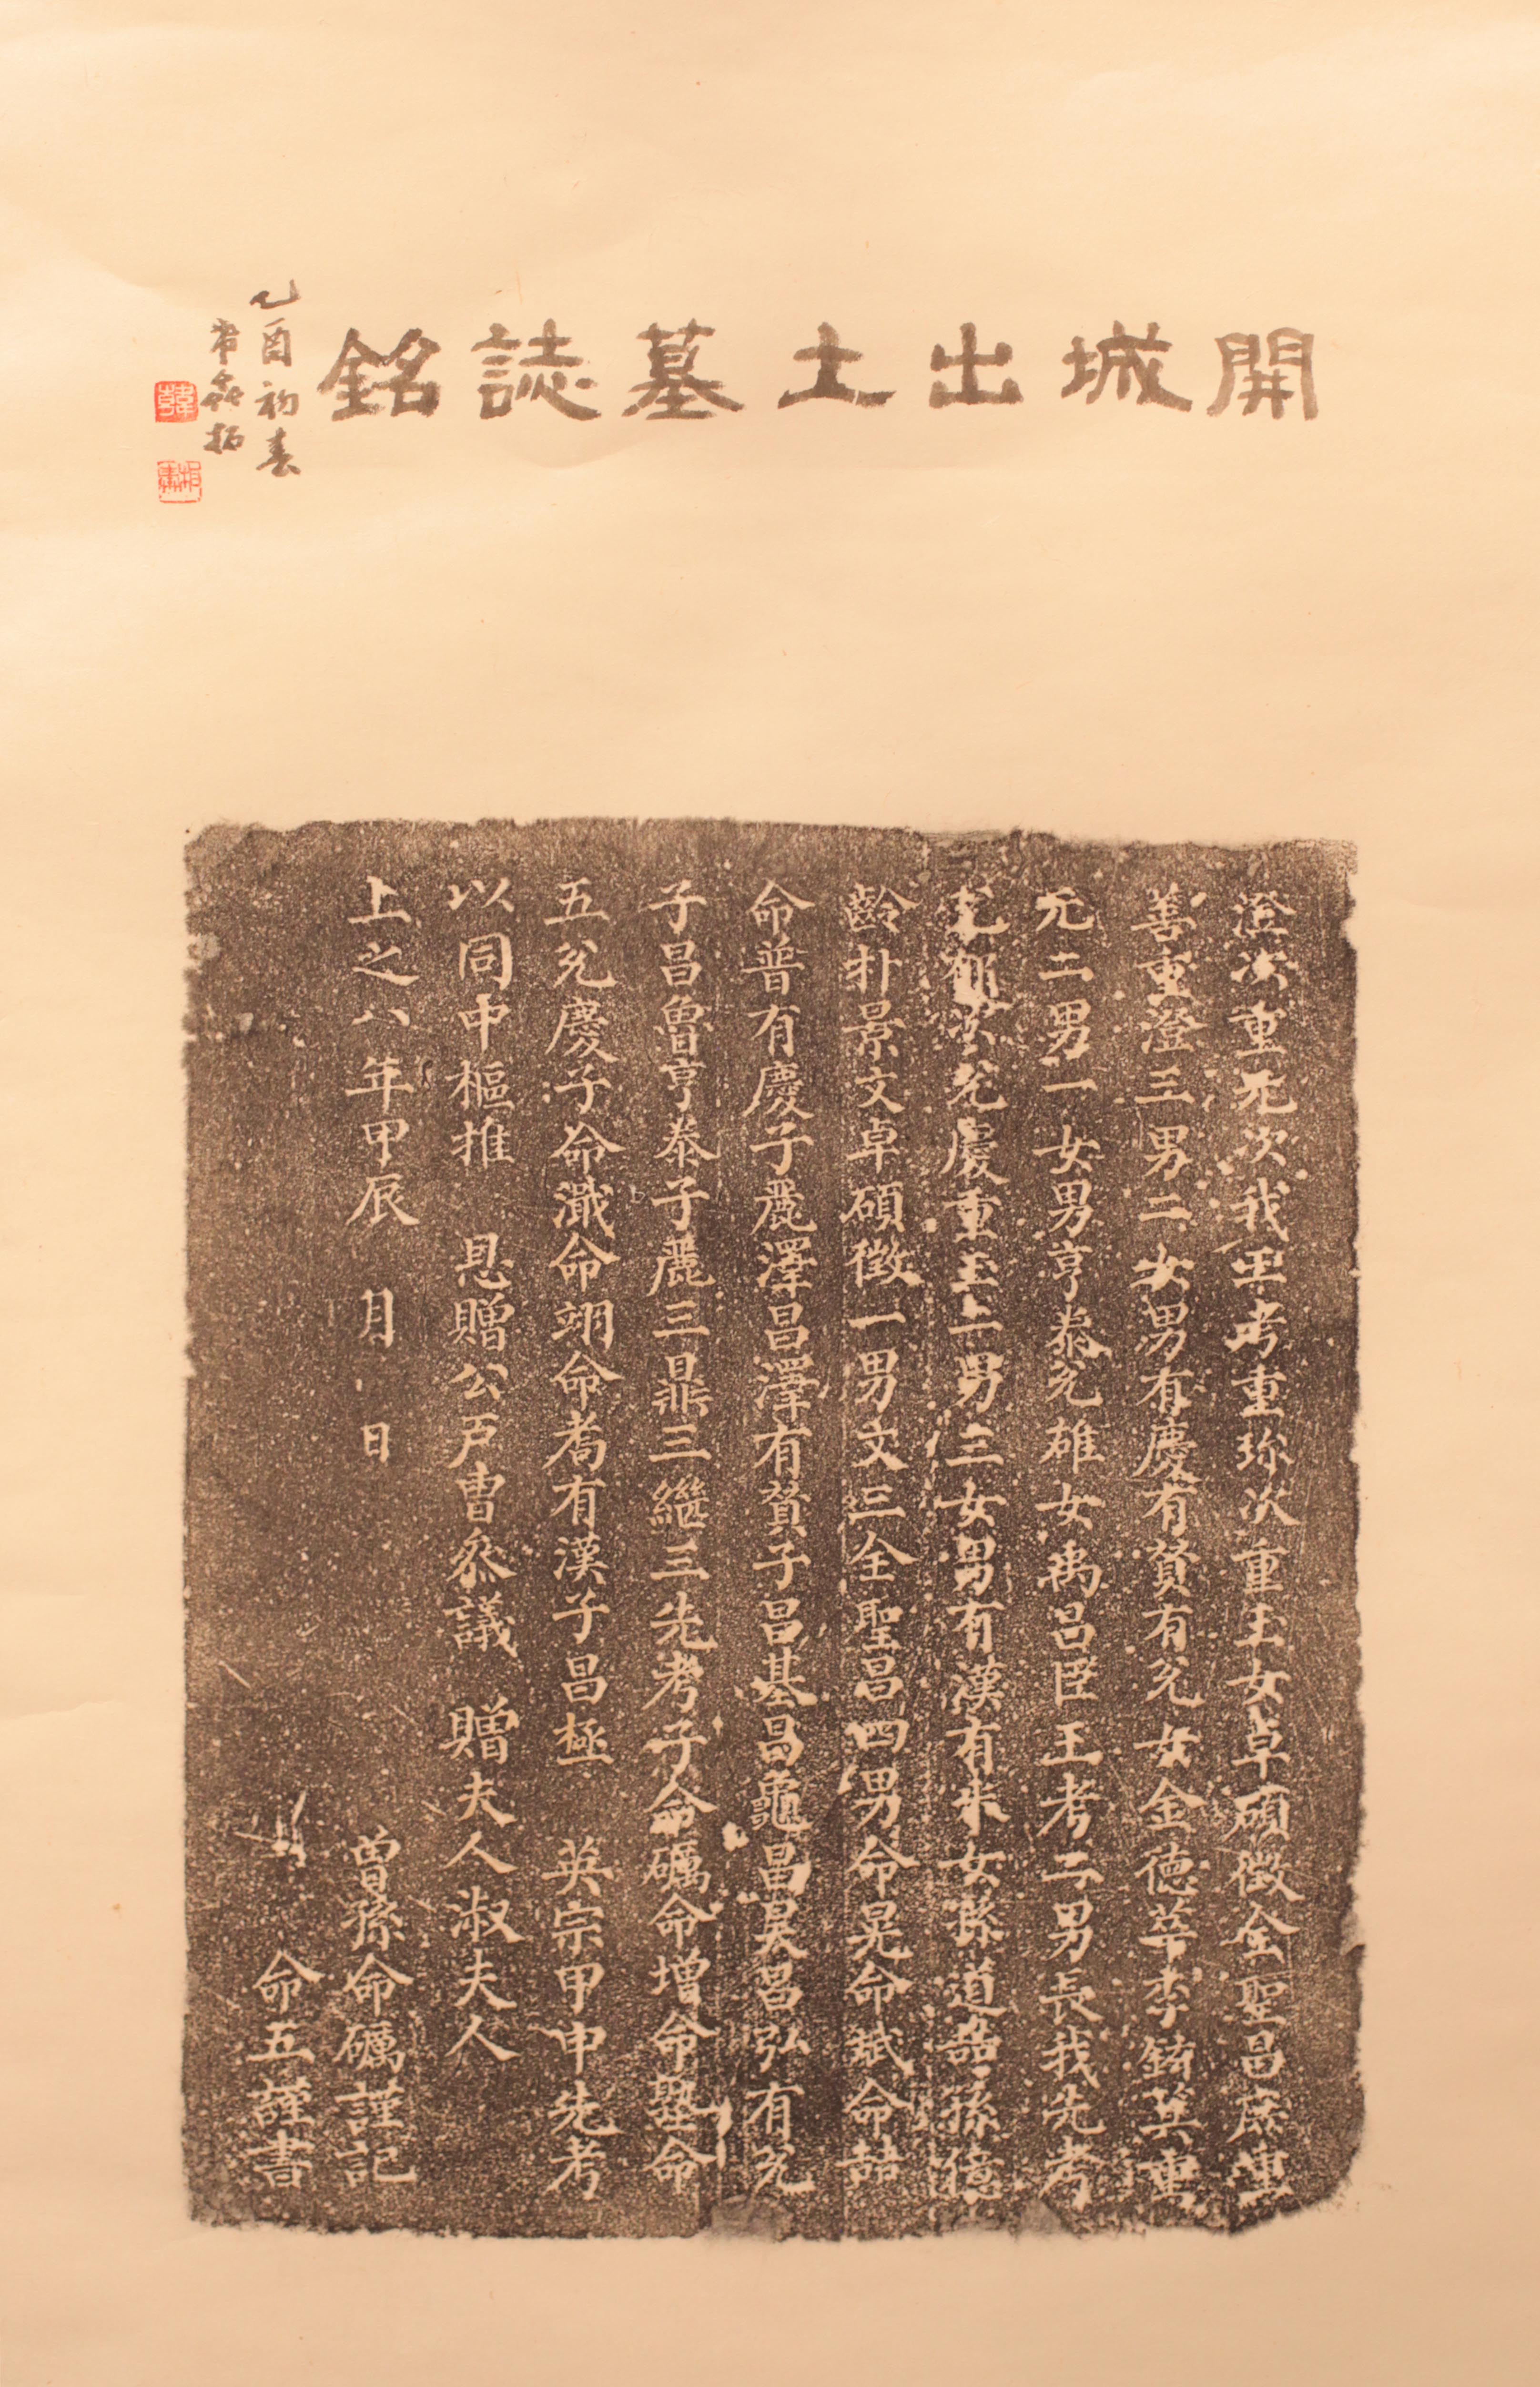 開城出土墓誌銘
乙酉初春
拓
韓
澄次重元次我王考重珎次重玉女卓碩徵全聖昌庶重
善重澄三男二女男有慶有贇有兊女金德萃李鑄箕重
元二男一女男亨泰兊雄女禹呂臣王考二男長我先考
兊慶重玉二男三女男有漢有米女孫道喆孫億
齡朴景文卓碩徵一男文三全聖昌四男命晃命斌命喆
命普有慶子麗澤昌澤有贇子昌基昌龜昌昊昌弘有兊
子昌魯亨泰子麗三鼎三繼三先考子命礪命增命塾命
五兊慶子命瀐命翊命喬有漢子昌極 英宗甲申先考
以同中樞推 恩贈公戸曹叅議 贈夫人淑夫人
上之八年甲辰 月 日 曾孫命礪謹記
命五謹書